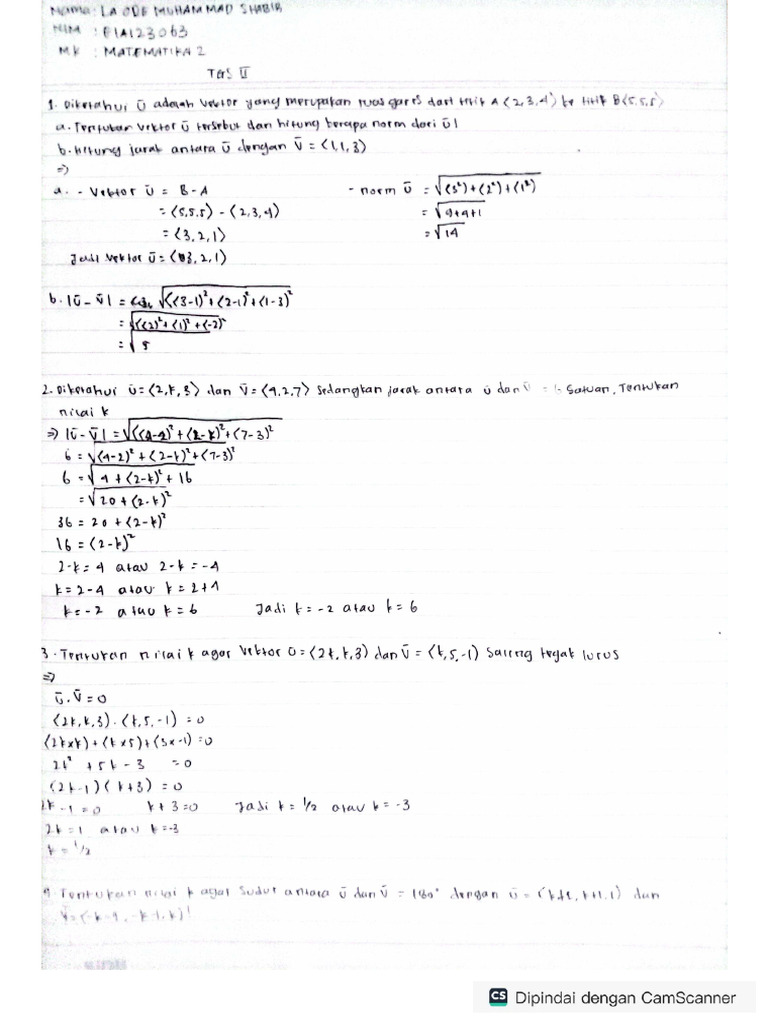 Nama : LA ODE MUHAMMAD SHABIR
NIM : E1A123063
MK : MATEMATIKA 2
TGS II
1. Diketahui ū adalah vektor yang merupakan ruas garis dari titik A<2,3,4> ke titik B<5,5,5>
a. Tentukan vektor ū tersebut dan hitung berapa norm dari ū!
b. Hitung jarak antara ū dengan v̄ = <1,1,3>
=>
a. - Vektor ū = B - A
= <5,5,5> - <2,3,4>
= <3,2,1>
Jadi vektor ū = <3,2,1>
- norm ū = √(3²)+(2²)+(1²)
= √9+4+1
= √14
b. |ū - v̄| = √((3-1)²+(2-1)²+(1-3)²
= √((2)²+(1)²+(-2)²
= √8
2. Diketahui ū = <2,k,3> dan v̄ = <4,2,7> sedangkan jarak antara ū dan v̄ = 6 satuan, Tentukan
nilai k
=> |ū - v̄| = √((4-2)²+(2-k)²+(7-3)²
6 = √(4-2)²+(2-k)²+(7-3)²
6 = √4+(2-k)²+16
= √20+(2-k)²
36 = 20+(2-k)²
16 = (2-k)²
2-k = 4 atau 2-k = -4
k = 2-4 atau k = 2+4
k = -2 atau k = 6 Jadi k = -2 atau k = 6
3. Tentukan nilai k agar vektor ū = <2k,k,3> dan v̄ = <k,5,-1> saling tegak lurus
=>
ū.v̄ = 0
<2k,k,3>.<k,5,-1> = 0
(2k×k)+(k×5)+(3×-1) = 0
2k² + 5k - 3 = 0
(2k-1)(k+3) = 0
2k-1 = 0 k+3 = 0 Jadi k = 1/2 atau k = -3
2k = 1 atau k = -3
k = 1/2
4. Tentukan nilai k agar sudut antara ū dan v̄ = 180° dengan ū = <k+1, k+1, 1> dan
v̄ = <-k-1, -k-1, k>!
CS Dipindai dengan CamScanner